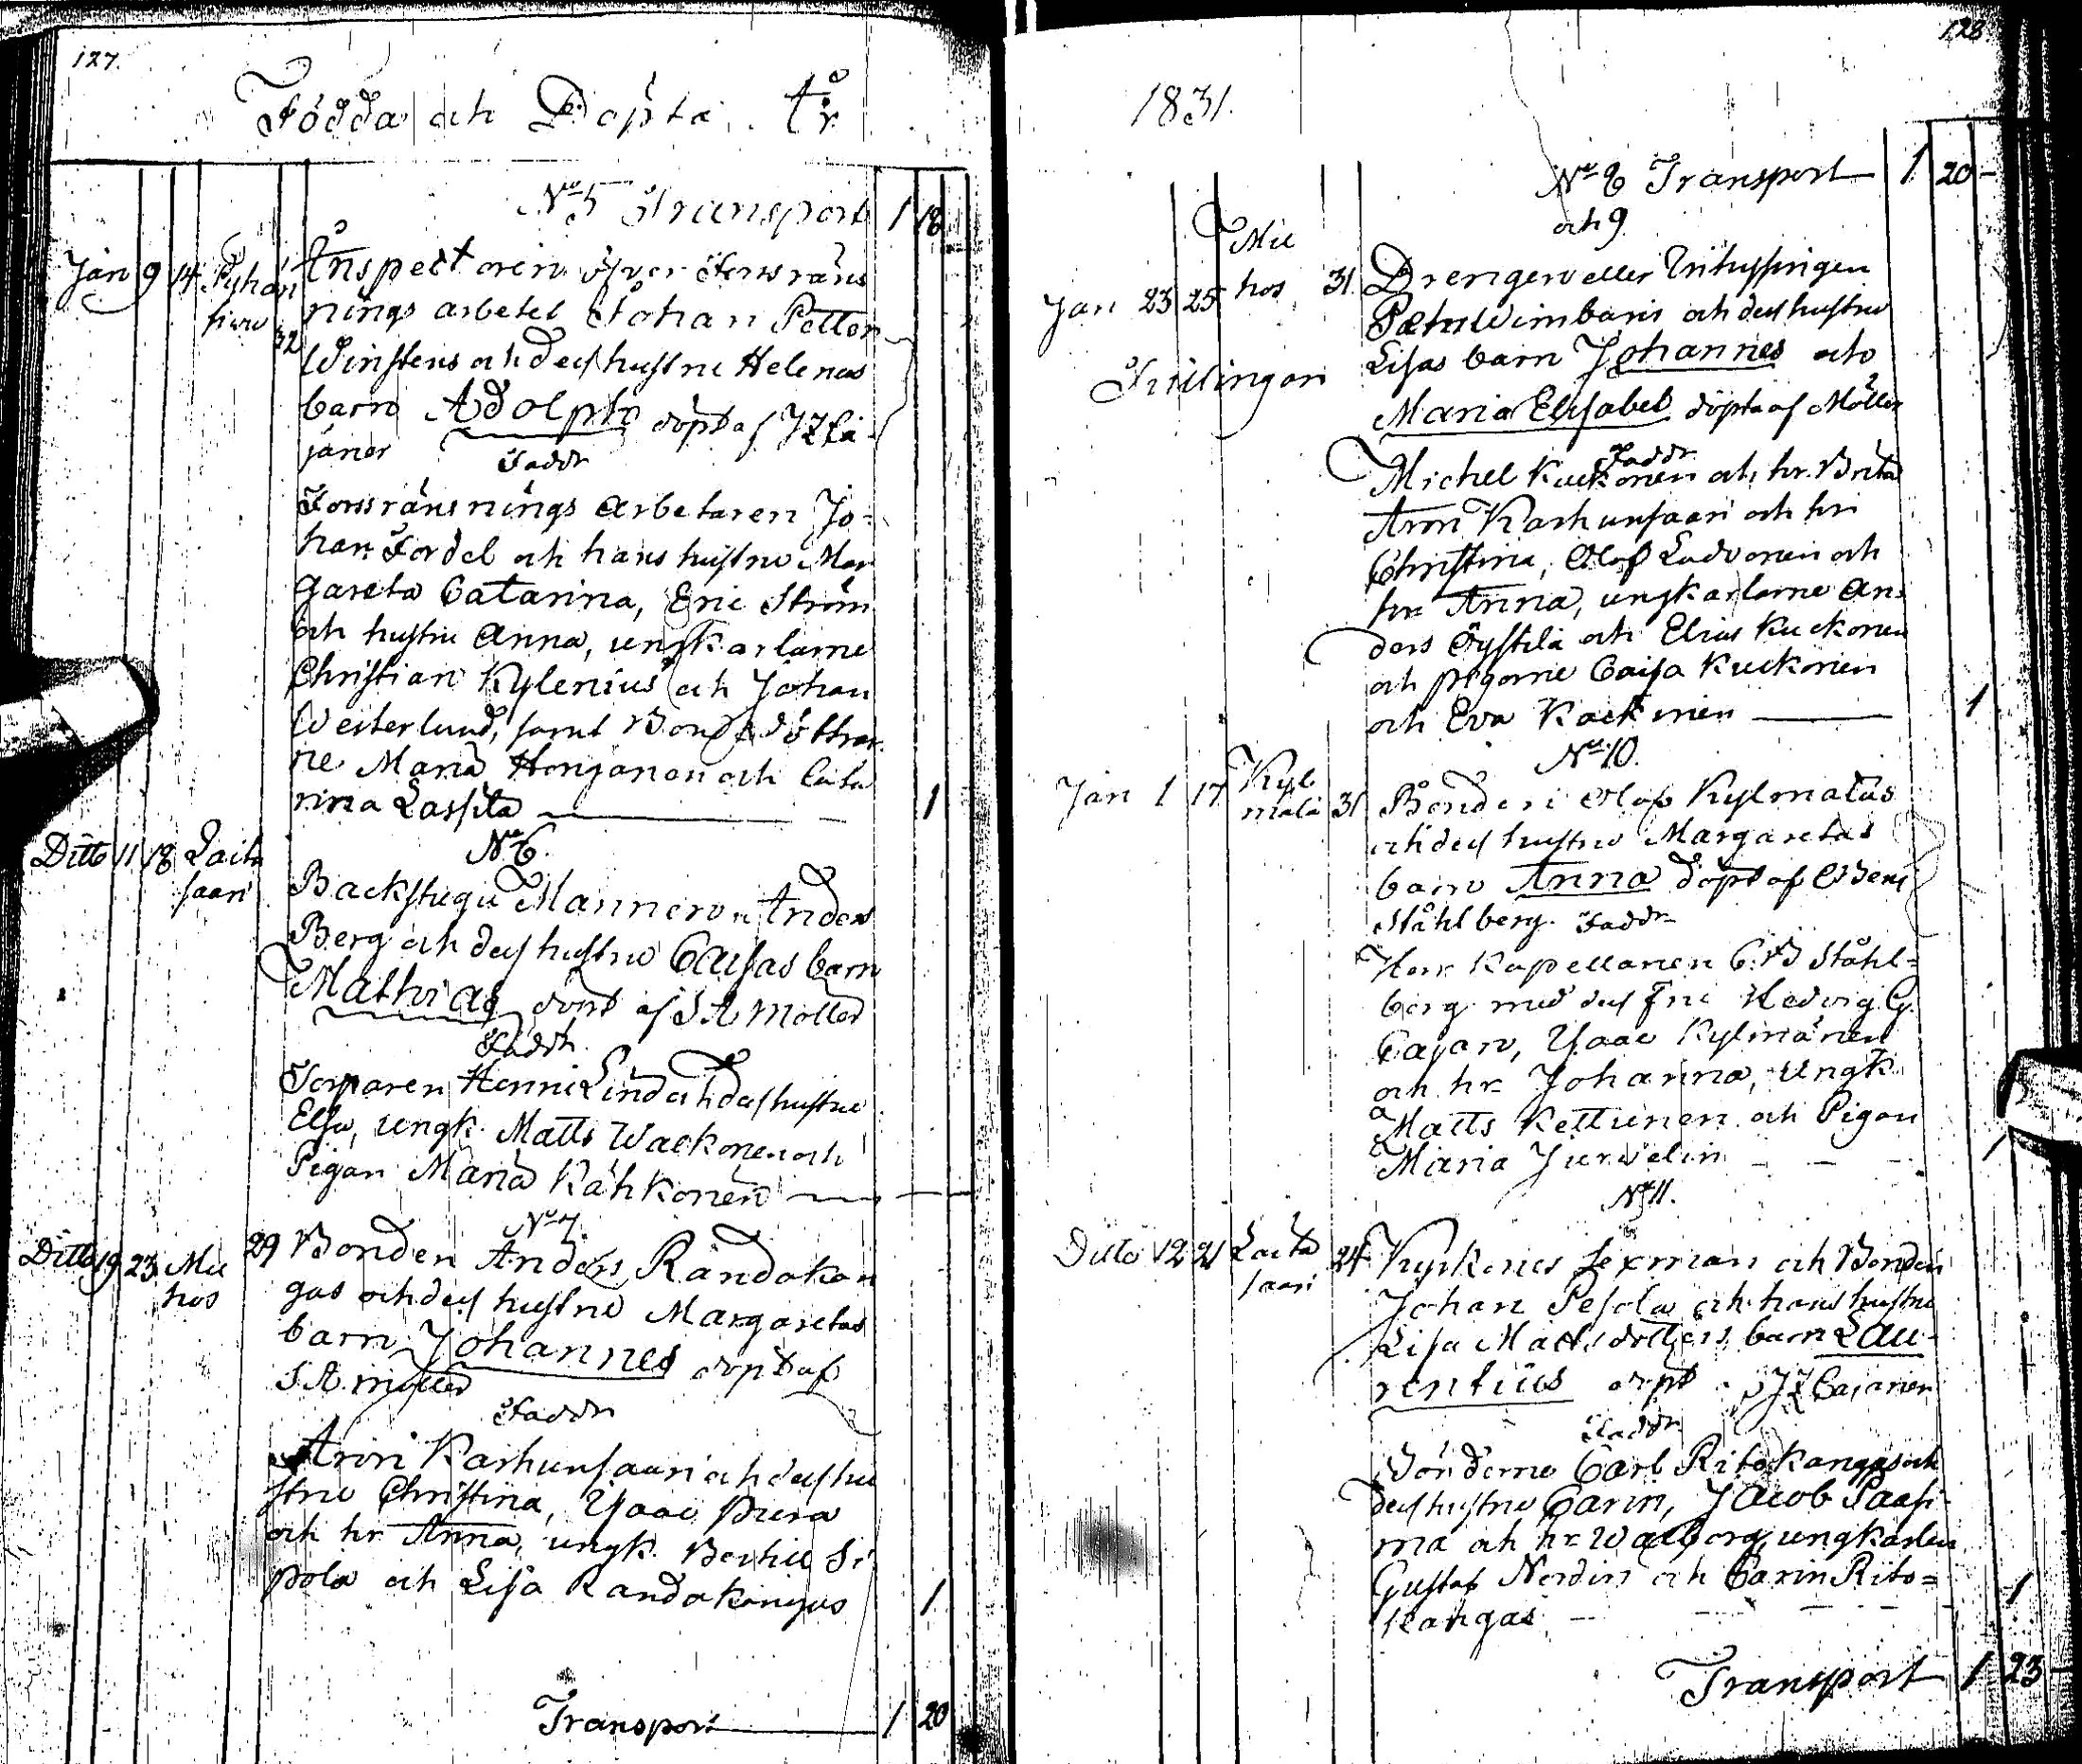 127.
Födda och Döpta År
No 5 Transport 1 18
Jan 9 14 Pyhän
Inspectoren öfver Forssräns
nings arbetet Johan Petter
32
Winstens och dess hustru Helenas
barn Adolph döpt af J Z Ca-
janer
Faddr
Forssränsnings arbetaren Jo-
han Fordel och hans hustru Mar
gareta Catarina, Eric Ström
och hustru Anna, ungkarlarne
Christian Kylenius och Johan
Westerlund, samt Bondedöttrar
ne Maria Honganen och Cata
rina Lassila 1
No 6.
Ditto 11 18 Laita
saari
Backstugu Mannen Anders
Berg och dess hustru Caisas barn
Mathias döpt af J A Möller
Faddr
Torparen Henric Lind och dess hustru
Elsa, ungk. Matts Wackonen och
Pigan Maria Kähkönen
No 7.
Ditto 19 23 Mu
hos
29 Bonden Anders Randakan
gas och dess hustru Margaretas
barn Johannes döpt af
J A Möller
Faddr
Aron Karhunsaari och dess hu
stru Christina, Isaac Pura
och hr Anna, ungk. Bertill Si
pola och Lisa Randakangas 1
Transport 1 20
128
1831.
No 8 Transport 1 20
och 9
Mu
hos
Jan 23 25 31.
Drengen eller Inhysingen
Petter Wimbari och dess hustru
Lisas barn Johannes och
Maria Elisabet döpta af Möller
Faddr
Michel Kuckonen och hr. Brita
Aron Karhunsaari och hr
Christina, Olof Ladvonen och
hr Anna, ungkarlarne An-
ders Öystilä och Elias Kuckonen
och pigorne Caisa Kuckonen
och Eva Kuckonen 1
No 10.
Jan 1 17 Kyl
mälä 31
Bonden Olof Kylmäläs
och dess hustru Margaretas
barn Anna döpt af
Ståhlberg. Faddr
Herr Kapellanen C. B Ståhl=
berg med dess Fru Hedvig G.
Cajan, Isaac Kylmänen
och hr Johanna, Ungk
Matts Kettunen och Pigan
Maria Jurvelin 1
No 11.
Ditto 12 21 Laita
saari
24 Kyrkones Sexman och Bonden
Johan Pesola och hans hustru
Lisa Mattsdotters barn Lau-
rentius döpt J Z Cajaner
Faddr
Bönderne Carl Ritokangas och
dess hustru Carin, Jacob Paasi-
ma och hr Walborg, ungkarlen
Gustaf Nordin och Carin Rito=
kangas 1
Transport 1 23